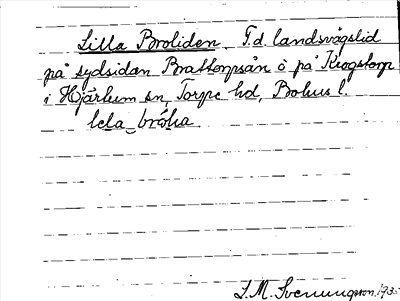 Lilla Broliden. F.d. landsvägslid
på sydsidan Brattorpsån å på Krogstorp
i Hjärtum sn, Torpe hd, Bohus l.
lela bròlia
S. M. Svenungsson, 193